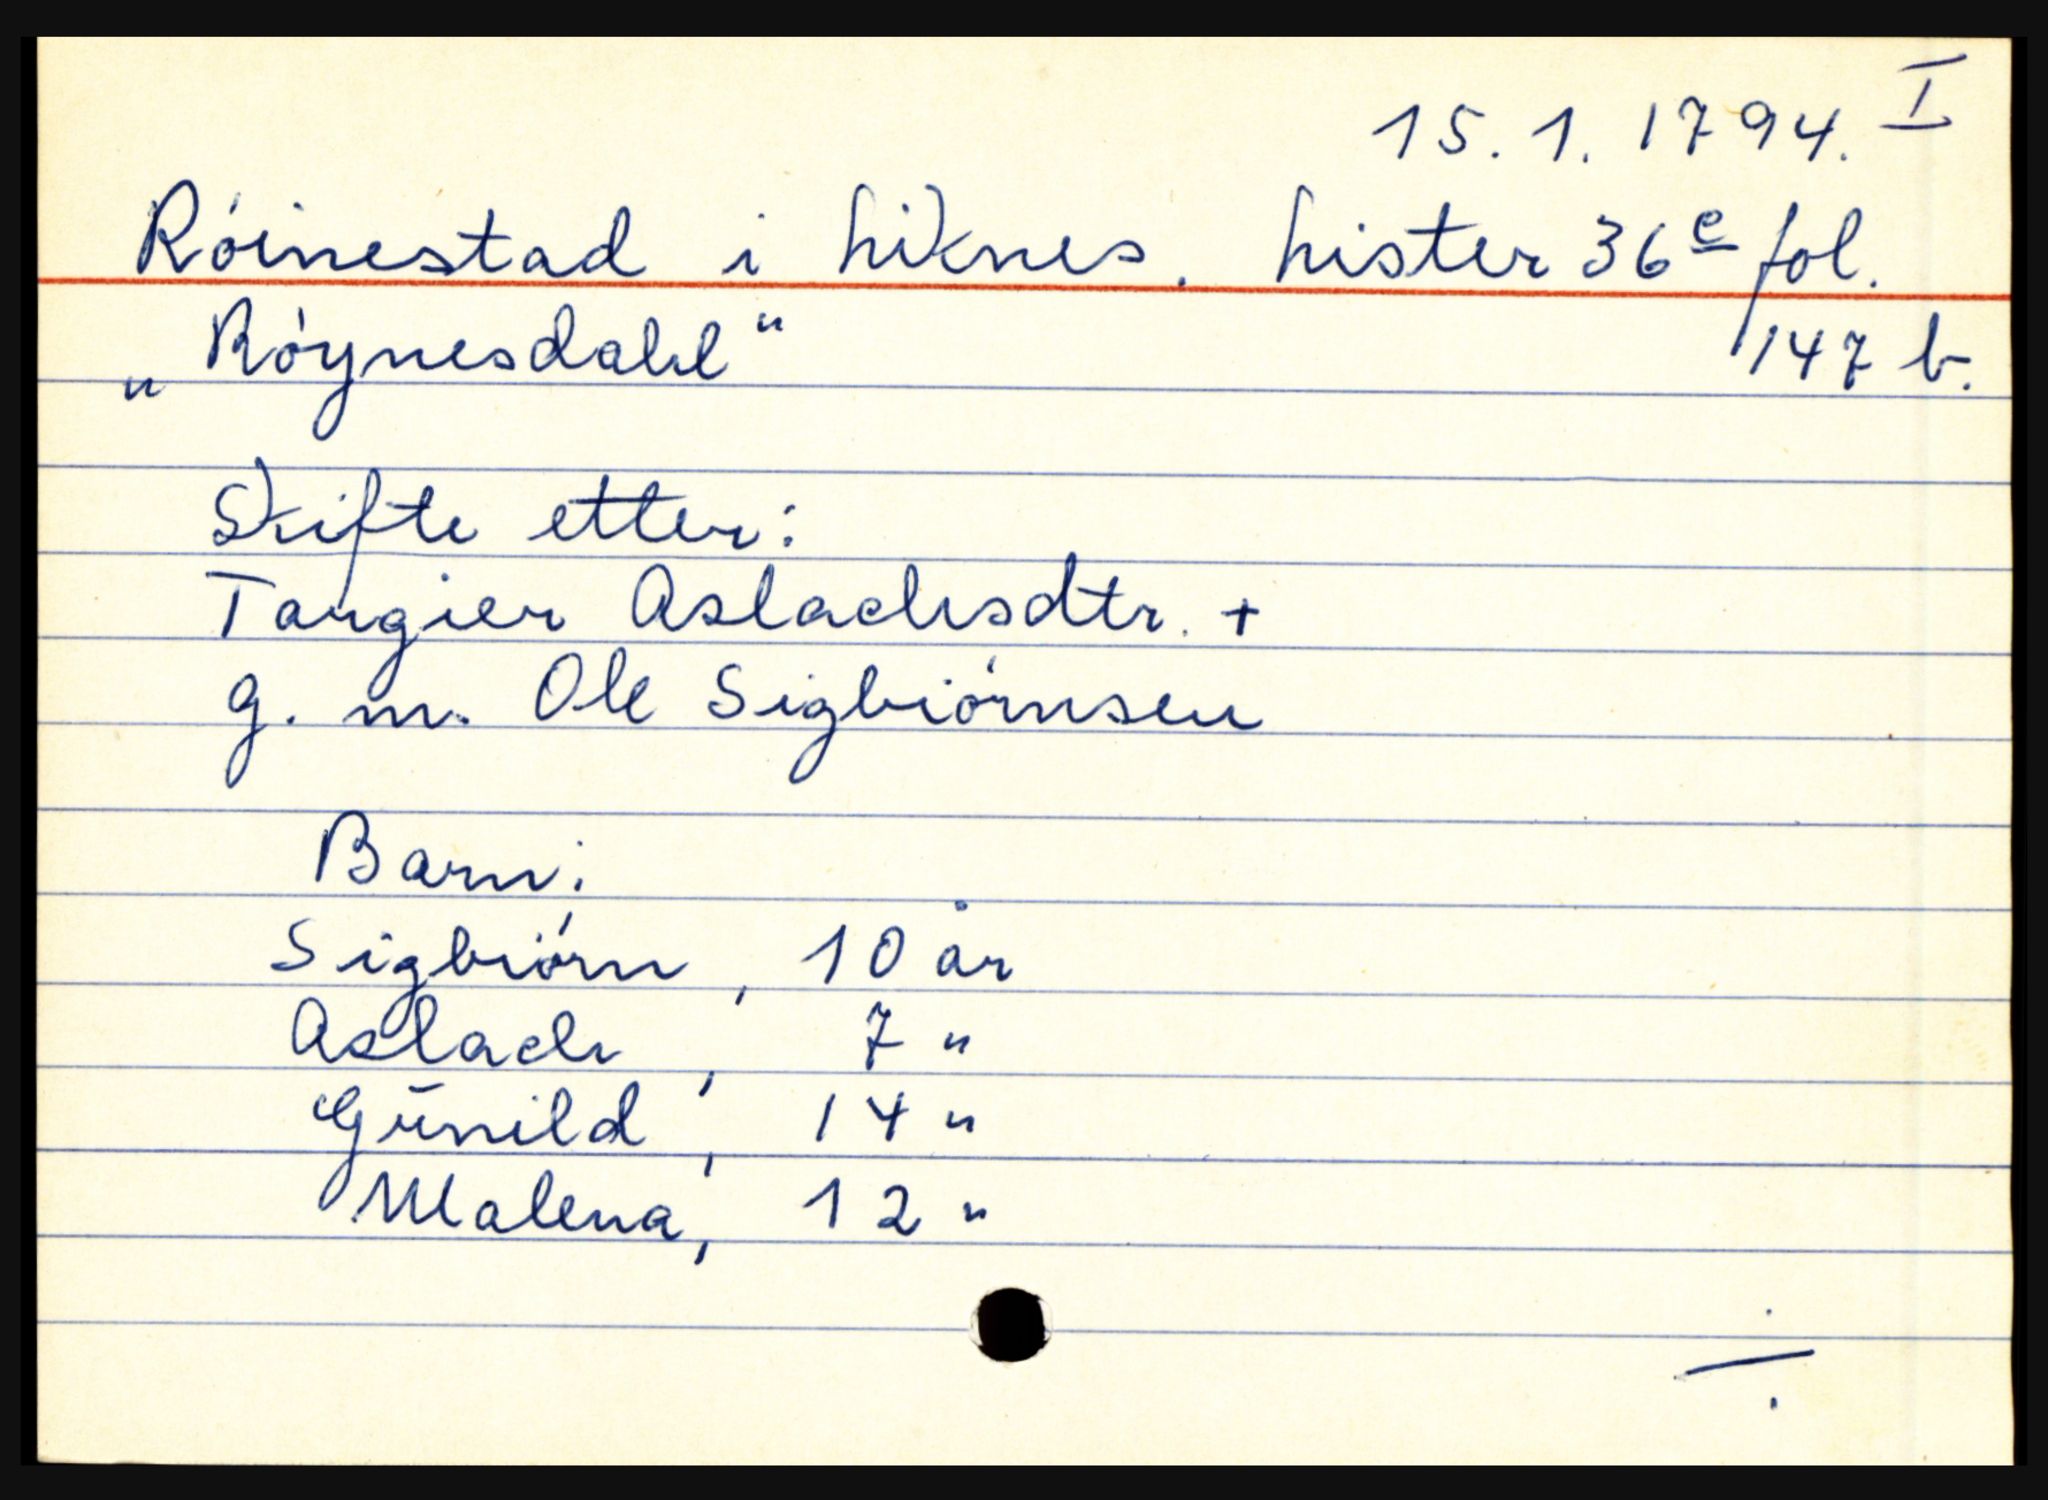 15.1.1794. I
Róinestad i Liknes. Lister 36e fol.
„Róynesdahl“ 147 b.
Skifte etter:
Tangier Aslachsdtr. +
g. m. Ole Sigbiórnsen
Barn:
Sigbiórn, 10 år
Aslach, 7 "
Gūnild, 14 "
Malena, 12 "